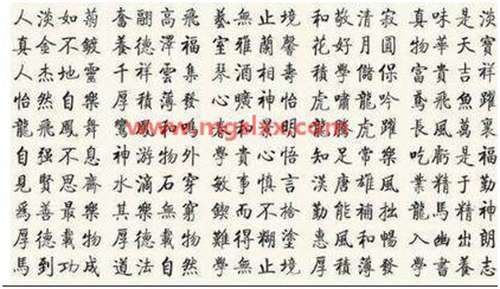 人淡如菊 奮翮高飛 藝無止境 和敬清寂 真味是淡
真金不鍍 養德澤福 室雅蘭馨 花好月圓 物華天寶
人杰地靈 千祥雲集 琴酒相壽 積學儲保 富貴吉祥
怡然自樂 厚積薄發 心曠神怡 虎嘯龍吟 鳶飛魚躍
龍飛鳳舞 鸞鳳和鳴 龍騰虎躍 長風萬裏
www.mgzlzx.com
自强不息 神游物外 學貴心悟 知足常樂 吃虧是福
見賢思齋 水滴石穿 敏事慎言 漢唐雄風 業精于勤
爲善最樂 其樂無窮 鍥而不捨 勤能補拙 龍馬精神
厚德載物 厚德載物 難得糊塗 惠風和暢 入幽出朗
馬到功成 道法自然 學無止境 厚積薄發 學書養志